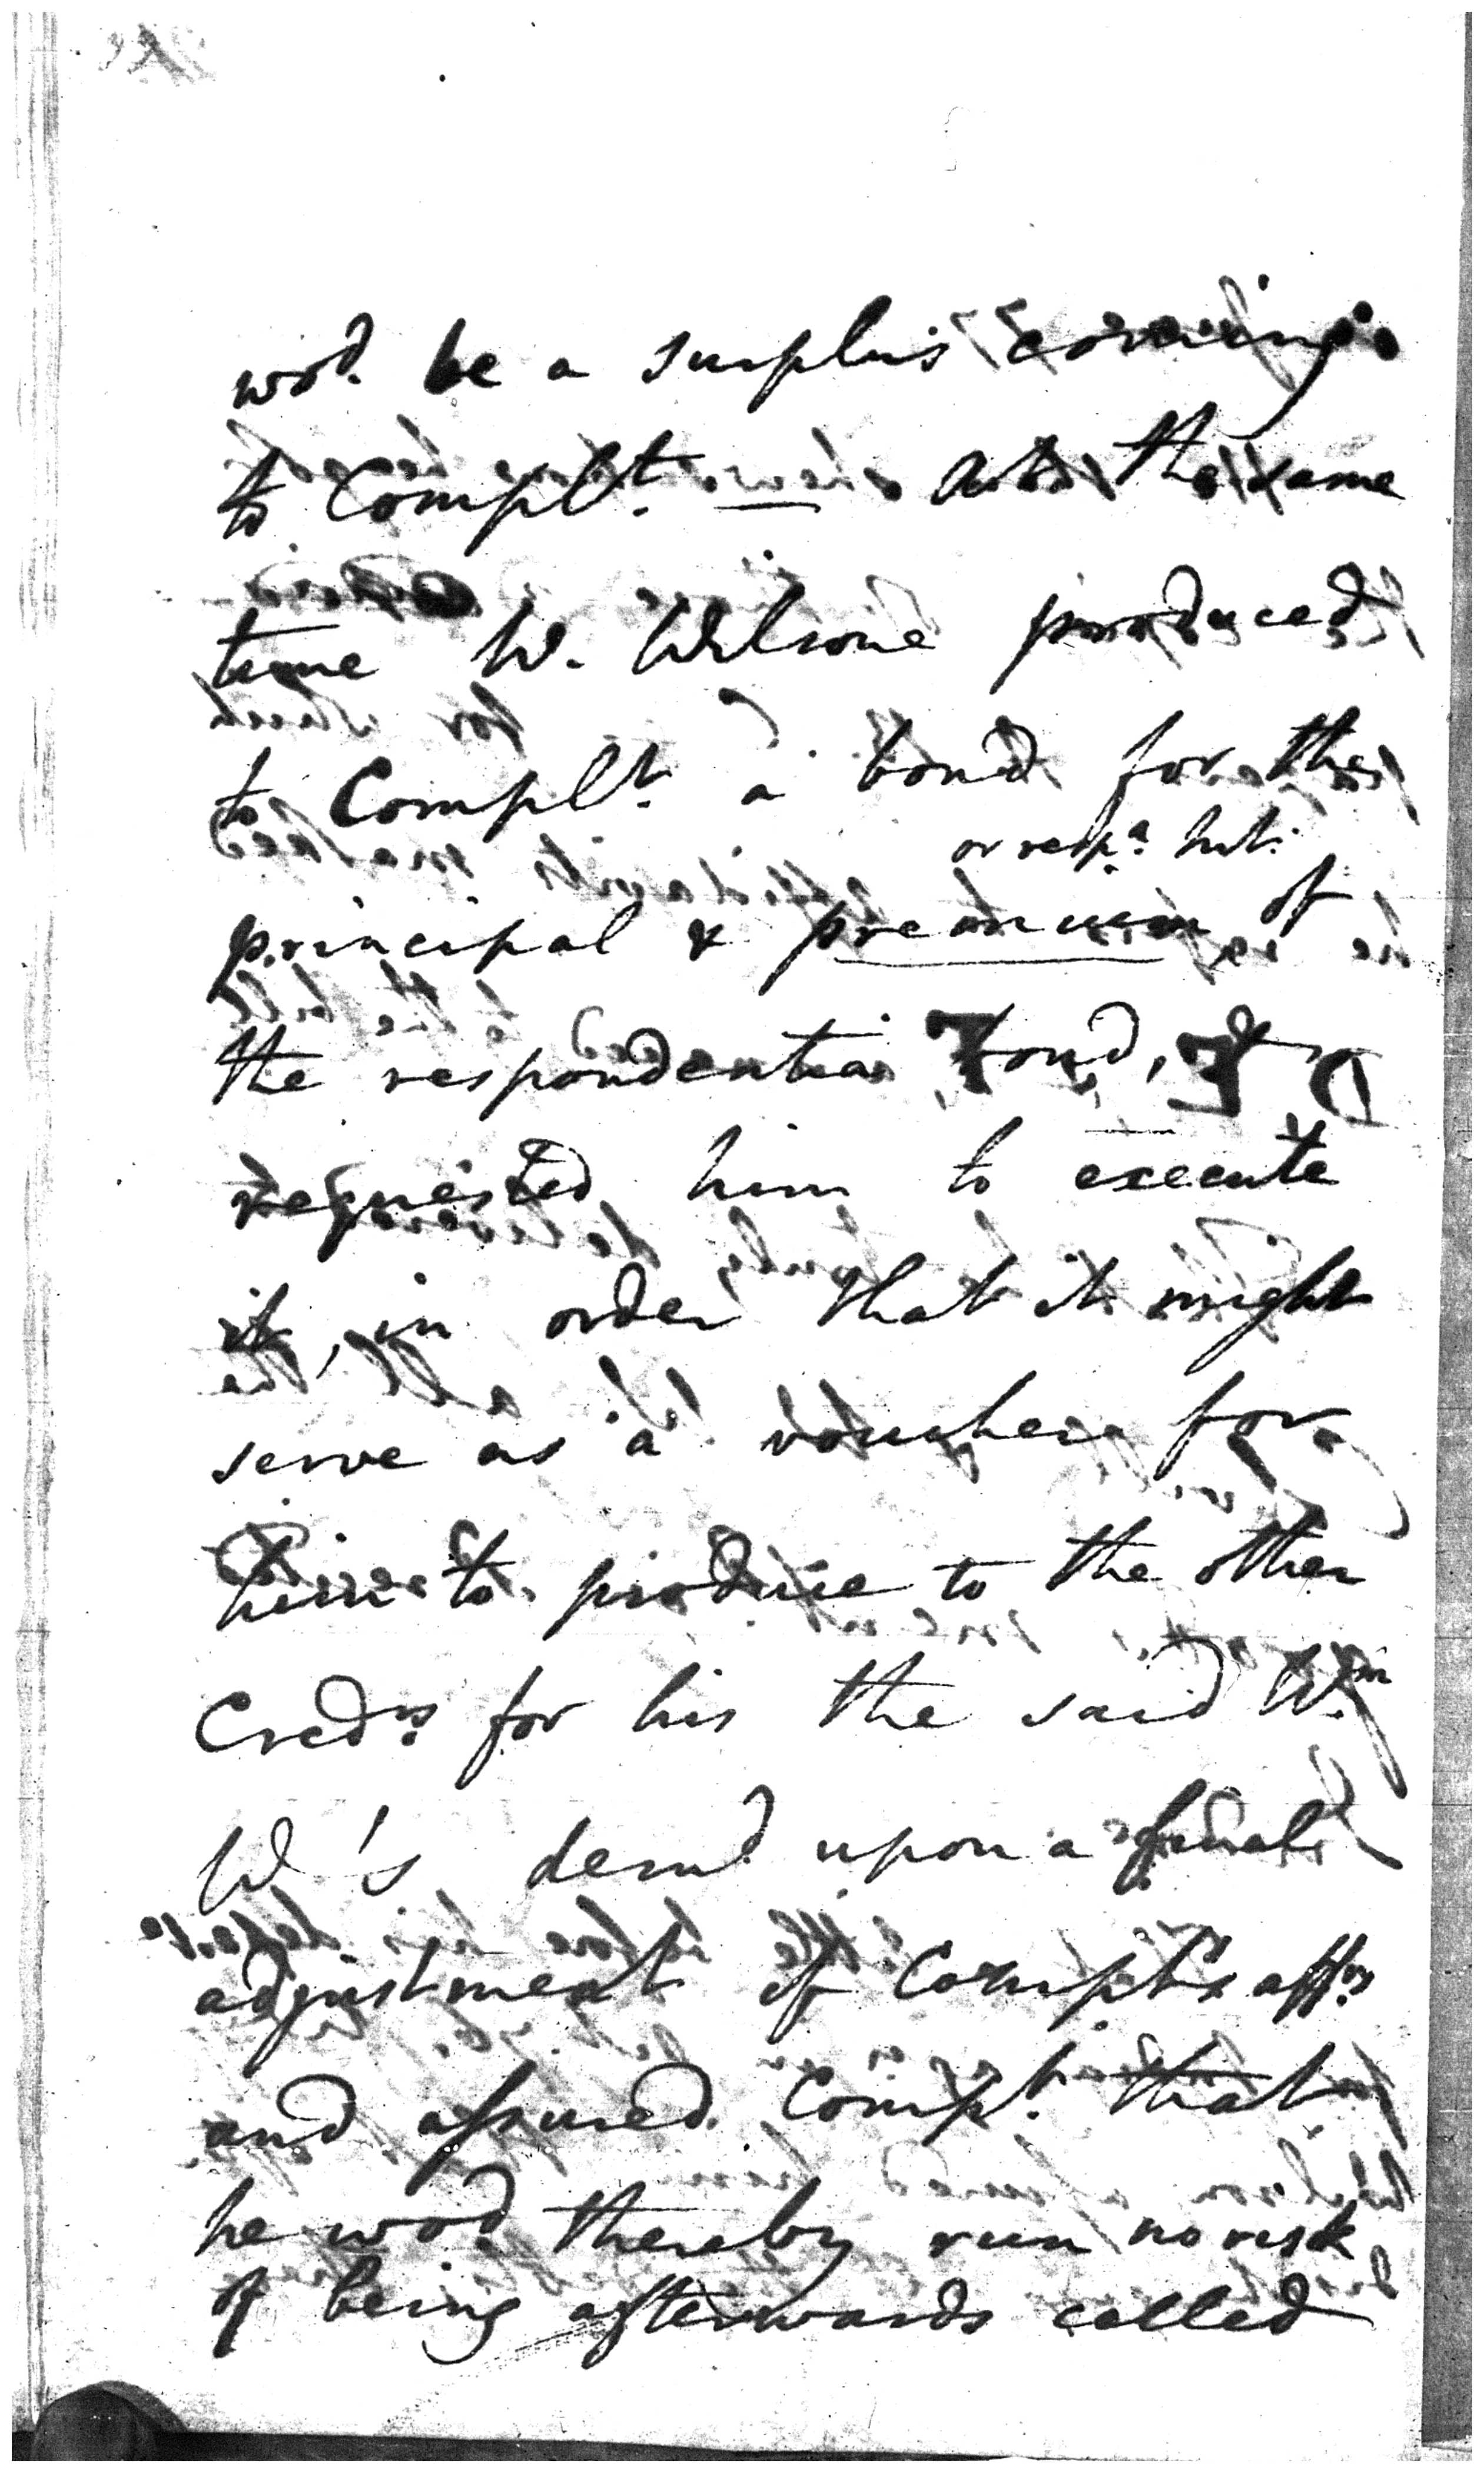 wod. be a surplus coming
to Complt. — At the same
time W. Wilsone produced
to Complt. a bond for the
or respa. Int.
principal & premium of
the respondentia Bond, &
requested him to execute
it, in order that it might
serve as a voucher for
him to produce to the other
Credrs. for his the said Wm
W's demd. upon a final
adjustment of Complt's affrs.
and assured Complt. that
he wod. thereby run no risk
of being afterwards called